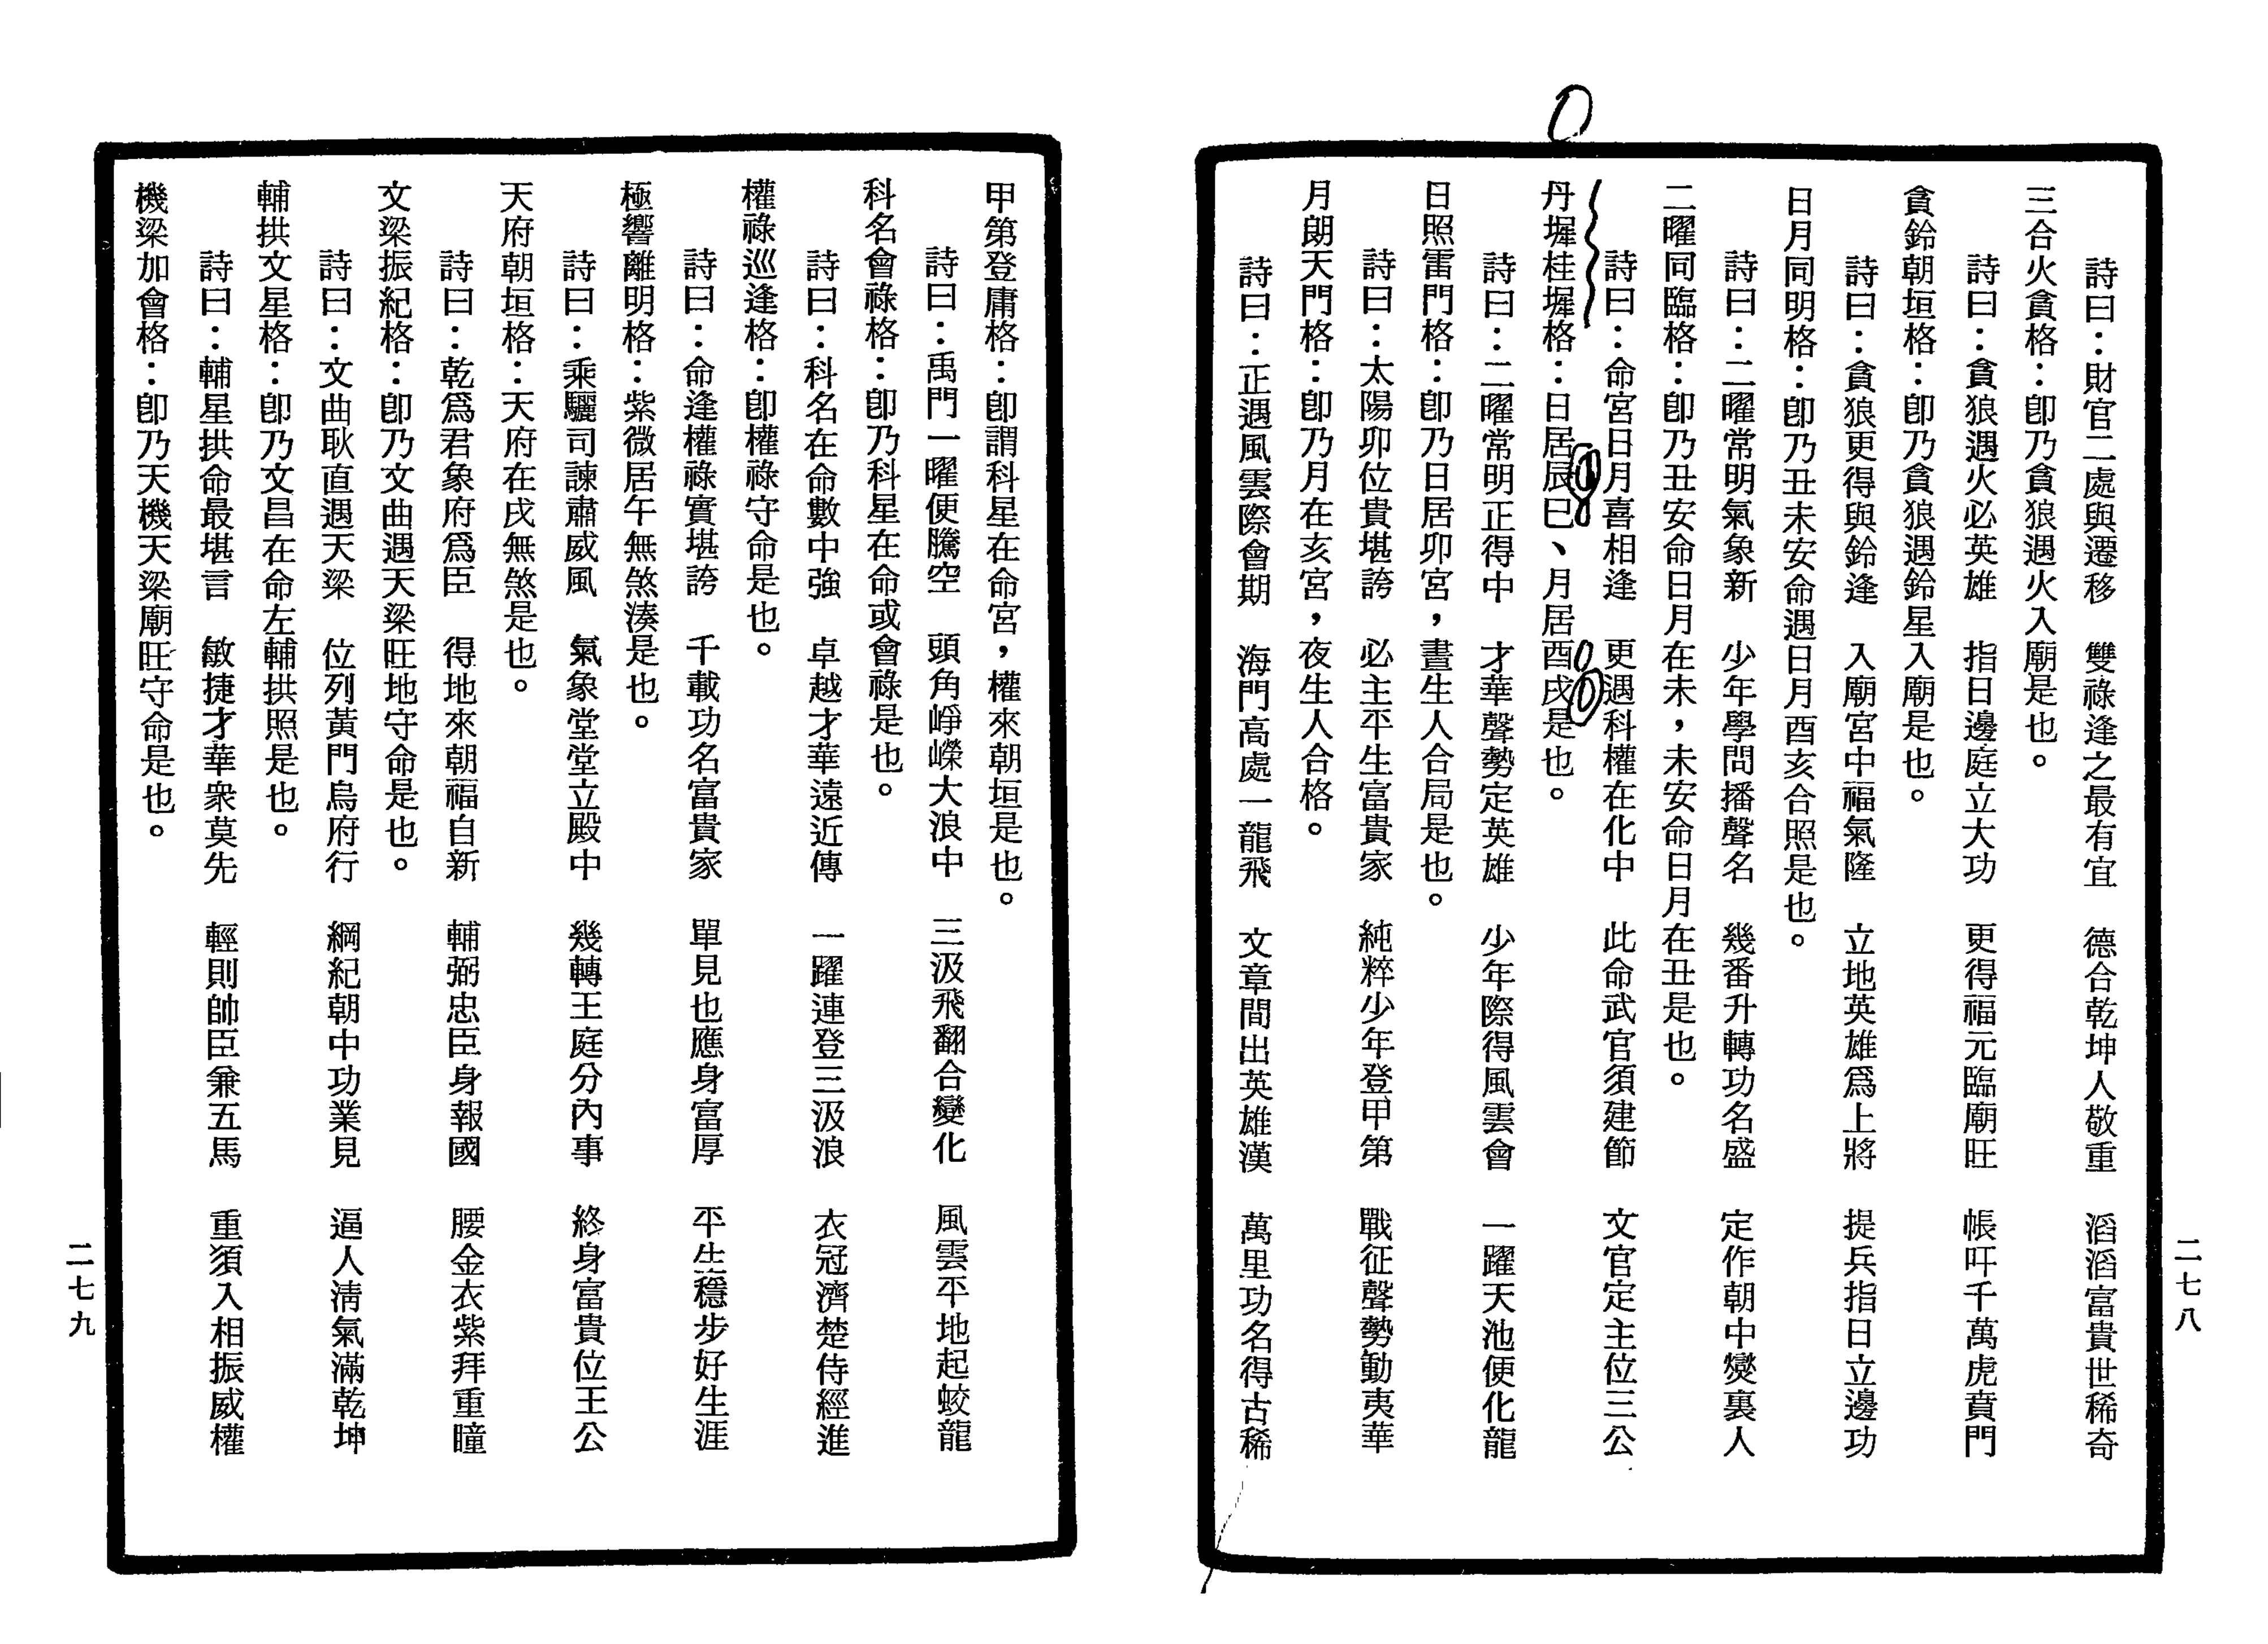 詩曰：財官二處與遷移　雙祿逢之最有宜　德合乾坤人敬重　滔滔富貴世稀奇
三合火貪格：卽乃貪狼遇火入廟是也。
詩曰：貪狼遇火必英雄　指日邊庭立大功　更得福元臨廟旺　帳吀千萬虎賁門
貪鈴朝垣格：卽乃貪狼遇鈴星入廟是也。
詩曰：貪狼更得與鈴逢　入廟宮中福氣隆　立地英雄爲上將　提兵指日立邊功
日月同明格：卽乃丑未安命遇日月酉亥合照是也。
詩曰：二曜常明氣象新　少年學問播聲名　幾番升轉功名盛　定作朝中燮裏人
二曜同臨格：卽乃丑安命日月在未，未安命日月在丑是也。
詩曰：命宮日月喜相逢　更遇科權在化中　此命武官須建節　文官定主位三公
丹墀桂墀格：日居辰巳、月居酉戌是也。
詩曰：二曜常明正得中　才華聲勢定英雄　少年際得風雲會　一躍天池便化龍
日照雷門格：卽乃日居卯宮，晝生人合局是也。
詩曰：太陽卯位貴堪誇　必主平生富貴家　純粹少年登甲第　戰征聲勢動夷華
月朗天門格：卽乃月在亥宮，夜生人合格。
詩曰：正遇風雲際會期　海門高處一龍飛　文章間出英雄漢　萬里功名得古稀
二七八
甲第登庸格：卽謂科星在命宮，權來朝垣是也。
詩曰：禹門一曜便騰空　頭角崢嶸大浪中　三汲飛翻合變化　風雲平地起蛟龍
科名會祿格：卽乃科星在命或會祿是也。
詩曰：科名在命數中強　卓越才華遠近傳　一躍連登三汲浪　衣冠濟楚侍經進
權祿巡逢格：卽權祿守命是也。
詩曰：命逢權祿實堪誇　千載功名富貴家　單見也應身富厚　平生穩步好生涯
極響離明格：紫微居午無煞湊是也。
詩曰：乘驪司諫肅威風　氣象堂堂立殿中　幾轉王庭分內事　終身富貴位王公
天府朝垣格：天府在戌無煞是也。
詩曰：乾爲君象府爲臣　得地來朝福自新　輔弼忠臣身報國　腰金衣紫拜重瞳
文梁振紀格：卽乃文曲遇天梁旺地守命是也。
詩曰：文曲耿直遇天梁　位列黃門烏府行　綱紀朝中功業見　逼人淸氣滿乾坤
輔拱文星格：卽乃文昌在命左輔拱照是也。
詩曰：輔星拱命最堪言　敏捷才華衆莫先　輕則帥臣兼五馬　重須入相振威權
機梁加會格：卽乃天機天梁廟旺守命是也。
二七九